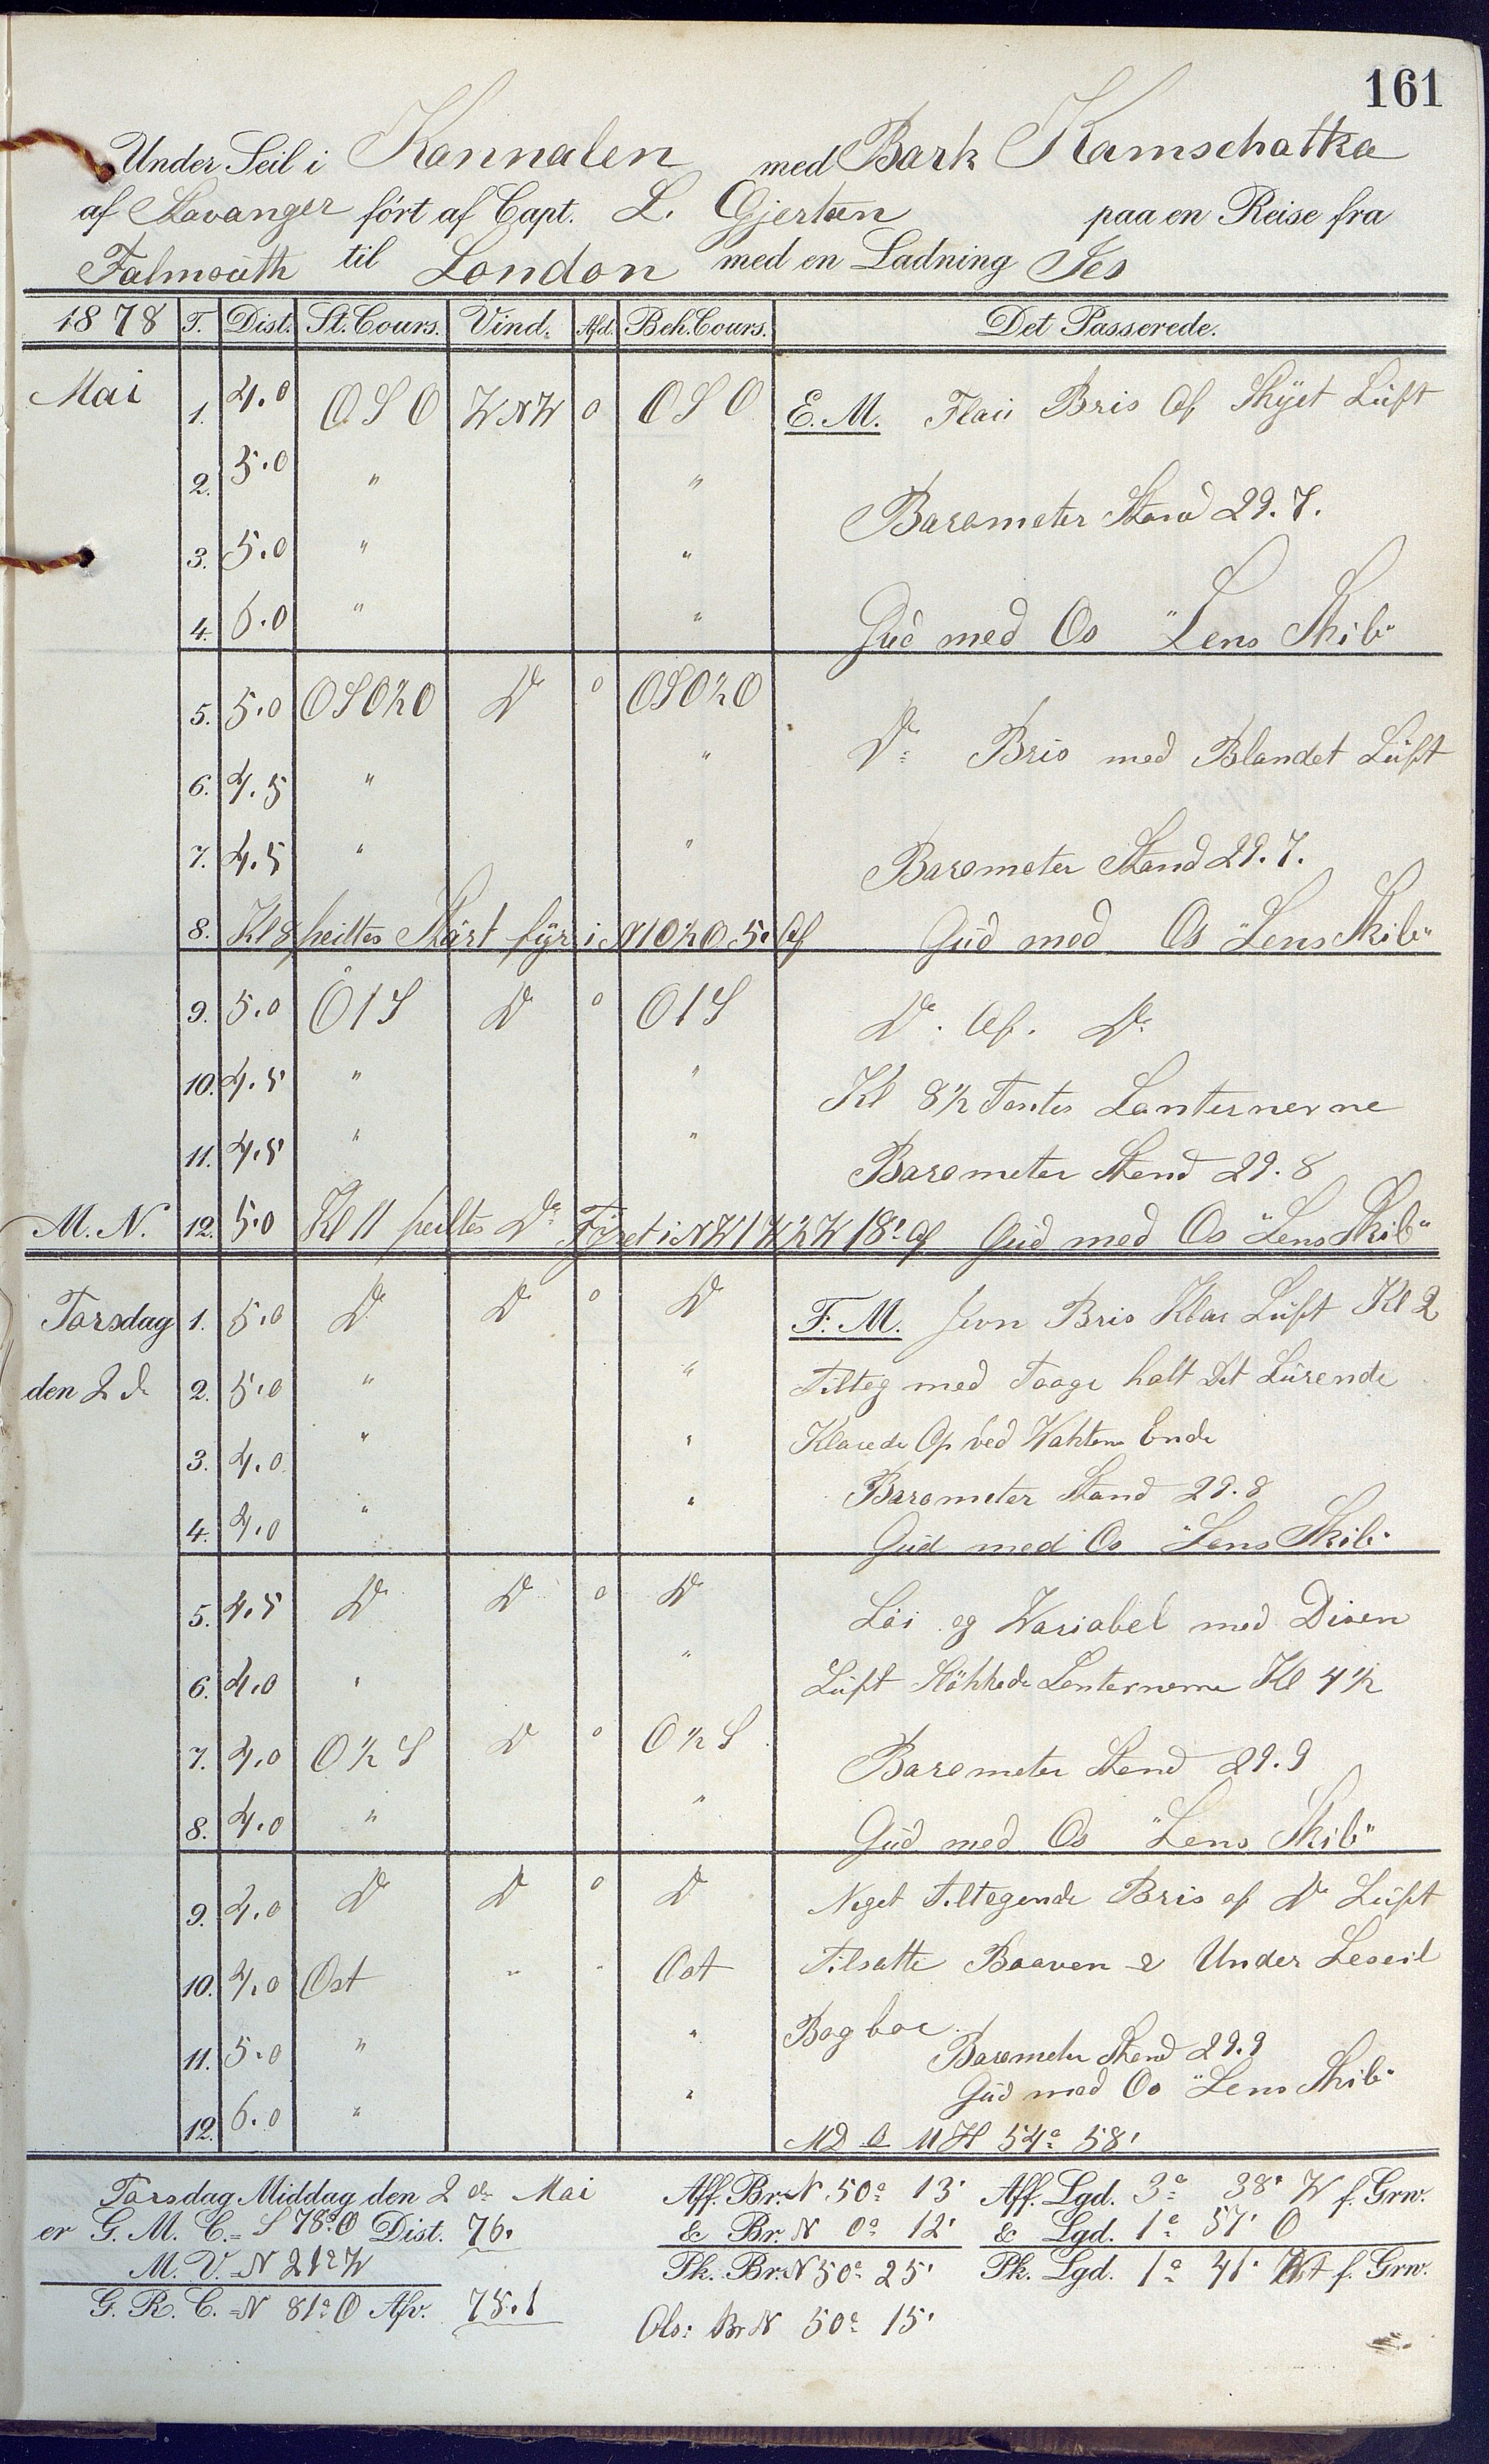 161
Under Seil i Kannalen med Bark Kamschatka
af Stavanger ført af Capt. L. Gjertsen paa en Reise fra
Falmouth til London med en Ladning Ies
1878 T. Dist. St. Cours. Vind. Afd. Beh. Cours. Det Passerede.
Mai 1. 4.0 OSO WNW 0 OSO E. M. Flau Bris Og Skyet Luft
2. 5.0 " "
Barometer Stand 29.7.
3. 5.0 " "
4. 6.0 " " Gud med Os "Lens Skib"
5. 5.0 OSO½O Do 0 OSO½O
Do Bris med Blandet Luft
6. 4.5 " "
7. 4.5 " " Barometer Stand 29.7.
8. Kl 8 peiltes Start fyr i N1O½O 5' Af Gud med Os "Lens Skib"
9. 5.0 O1S Do 0 O1S Do. Og. Do
10. 4.5 " " Kl 8½ Tentes Lanternerne
11. 4.5 " " Barometer Stand 29.8
M. N. 12. 5.0 Kl 11 peiltes Do Fyret i NW1W½W 18' af Gud med Os "Lens Skib"
Torsdag 1. 5.0 Do Do 0 Do F. M. Jevn Bris Klar Luft Kl 2
den 2de 2. 5.0 " " Tiltog med Taage holt Det Lurende
3. 4.0 " " Klarede Op ved Vahtens Ende
Barometer Stand 29.8
4. 4.0 " " Gud med Os "Lens Skib"
5. 4.5 Do Do 0 Do Løi og Wariabel med Disen
6. 4.0 " " Luft Slökkede Lenternerne Kl 4½
7. 4.0 O½S Do 0 O½S Barometer Stand 29.9
8. 4.0 " " Gud med Os "Lens Skib"
9. 4.0 Do Do 0 Do Noget Tiltagende Bris og Do Luft
10. 4.0 Ost " " Ost Tilsatte Boaven & Under Leseil
11. 5.0 " " Bagbor
Barometer Stand 29.9
Gud med Os "Lens Skib"
12. 6.0 " " MD O UH 54° 58'
Torsdag Middag den 2de Mai Aff. Br. N 50° 13' Aff. Lgd. 3° 38' W f. Grw.
er G. M. C. = S 78° O Dist. 76. & Br. N 0° 12' & Lgd. 1° 57' O
M. V. = N 21° W Pk. Br. N 50° 25' Pk. Lgd. 1° 41' W f. Grw.
G. R. C. = N 81° O Afv. 75.1
Obs: Br N 50° 15'